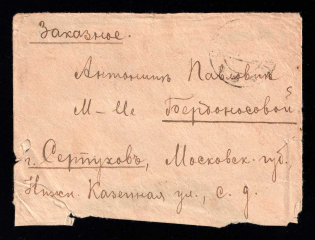 Заказное.
Антонинѣ Павловнѣ
М-me Бердоносовой
г. Серпуховъ, Московск. губ.,
Нижн. Казенная ул., с. д.